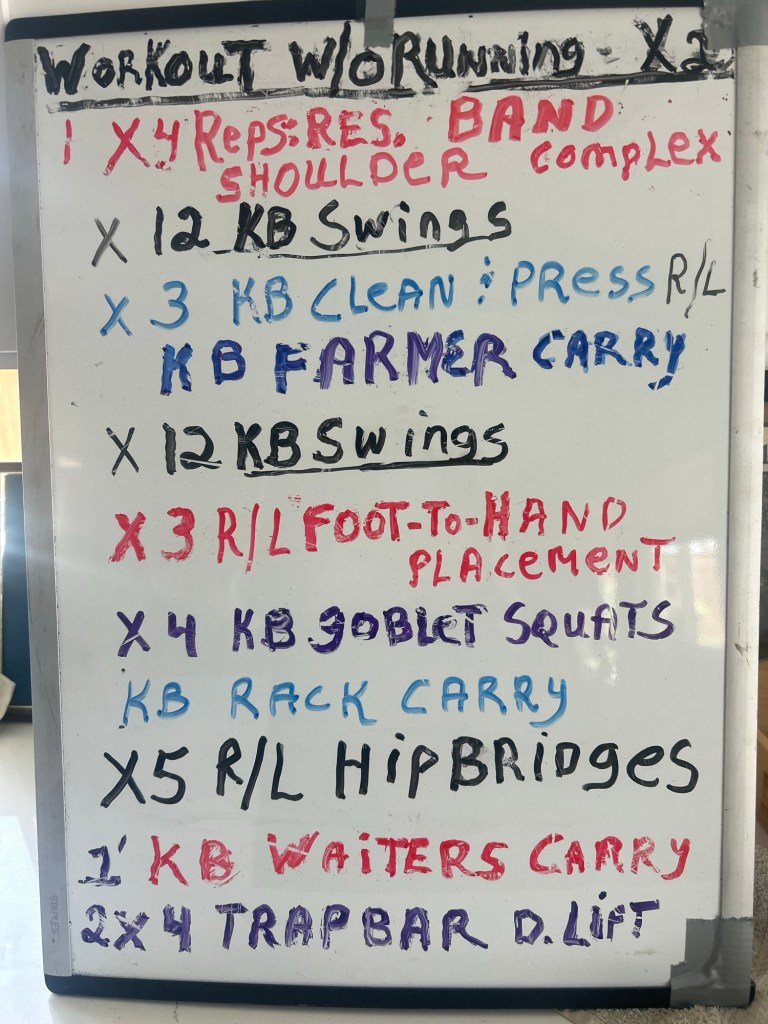 WORKOUT W/O RUNNING - X2
1 X4 Reps: RES. BAND
SHOULDER COMPLEX
X 12 KB Swings
X 3 KB CLEAN & PRESS R/L
KB FARMER CARRY
X 12 KB Swings
X 3 R/L FOOT-TO-HAND
PLACEMENT
X 4 KB GOBLET SQUATS
KB RACK CARRY
X5 R/L HIPBRIDGES
1' KB WAITERS CARRY
2X4 TRAPBAR D. LIFT
STAPLES